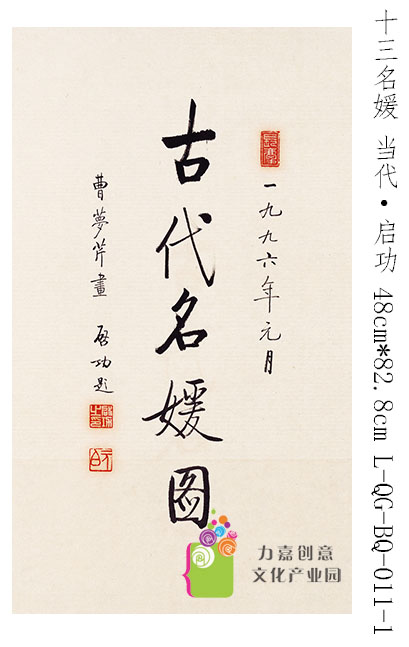 十三名媛 当代·启功 48cm*82.8cm L-QG-BQ-011-1
一九九六年元月
古代名媛图
曹夢芹畫 啓功题
力嘉创意
文化产业园